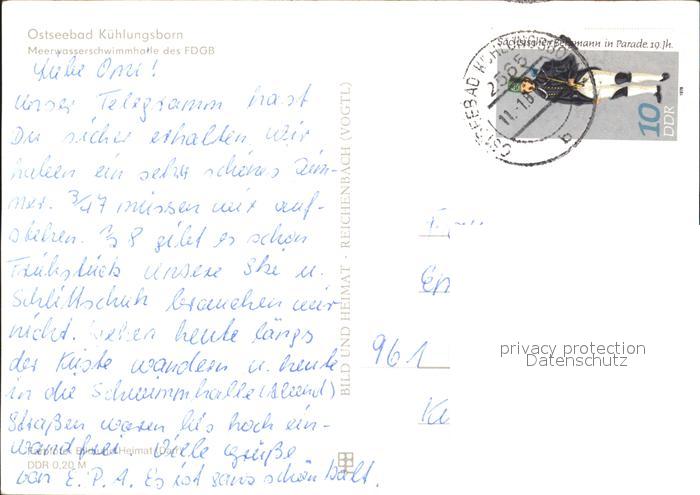 Ostseebad Kühlungsborn
Meerwasserschwimmhalle des FDGB
Liebe Omi!
Unser Telegramm hast
Du sicher erhalten. Wir
haben ein sehr schönes Zim-
mer. 3/4 7 müssen wir auf-
stehen. 1/2 8 gibt es schon
Frühstück. Unsere Ski u.
Schlittschuh brauchen wir
nicht. heute längs
der Küste wandern u. heute
in die Schwimmhalle (Abend)
Straßen waren bis hoch ein-
wandfrei. Viele grüße
von E. P. A. Es ist ganz schön kalt.
DDR 0,20 M
BILD UND HEIMAT · REICHENBACH (VOGTL)
Sächsischer Bergmann in Parade. 19. Jh.
10
DDR
1978
OSTSEEBAD KÜHLUNGSBORN
2565
11.-1.8
b
961
privacy protection
Datenschutz